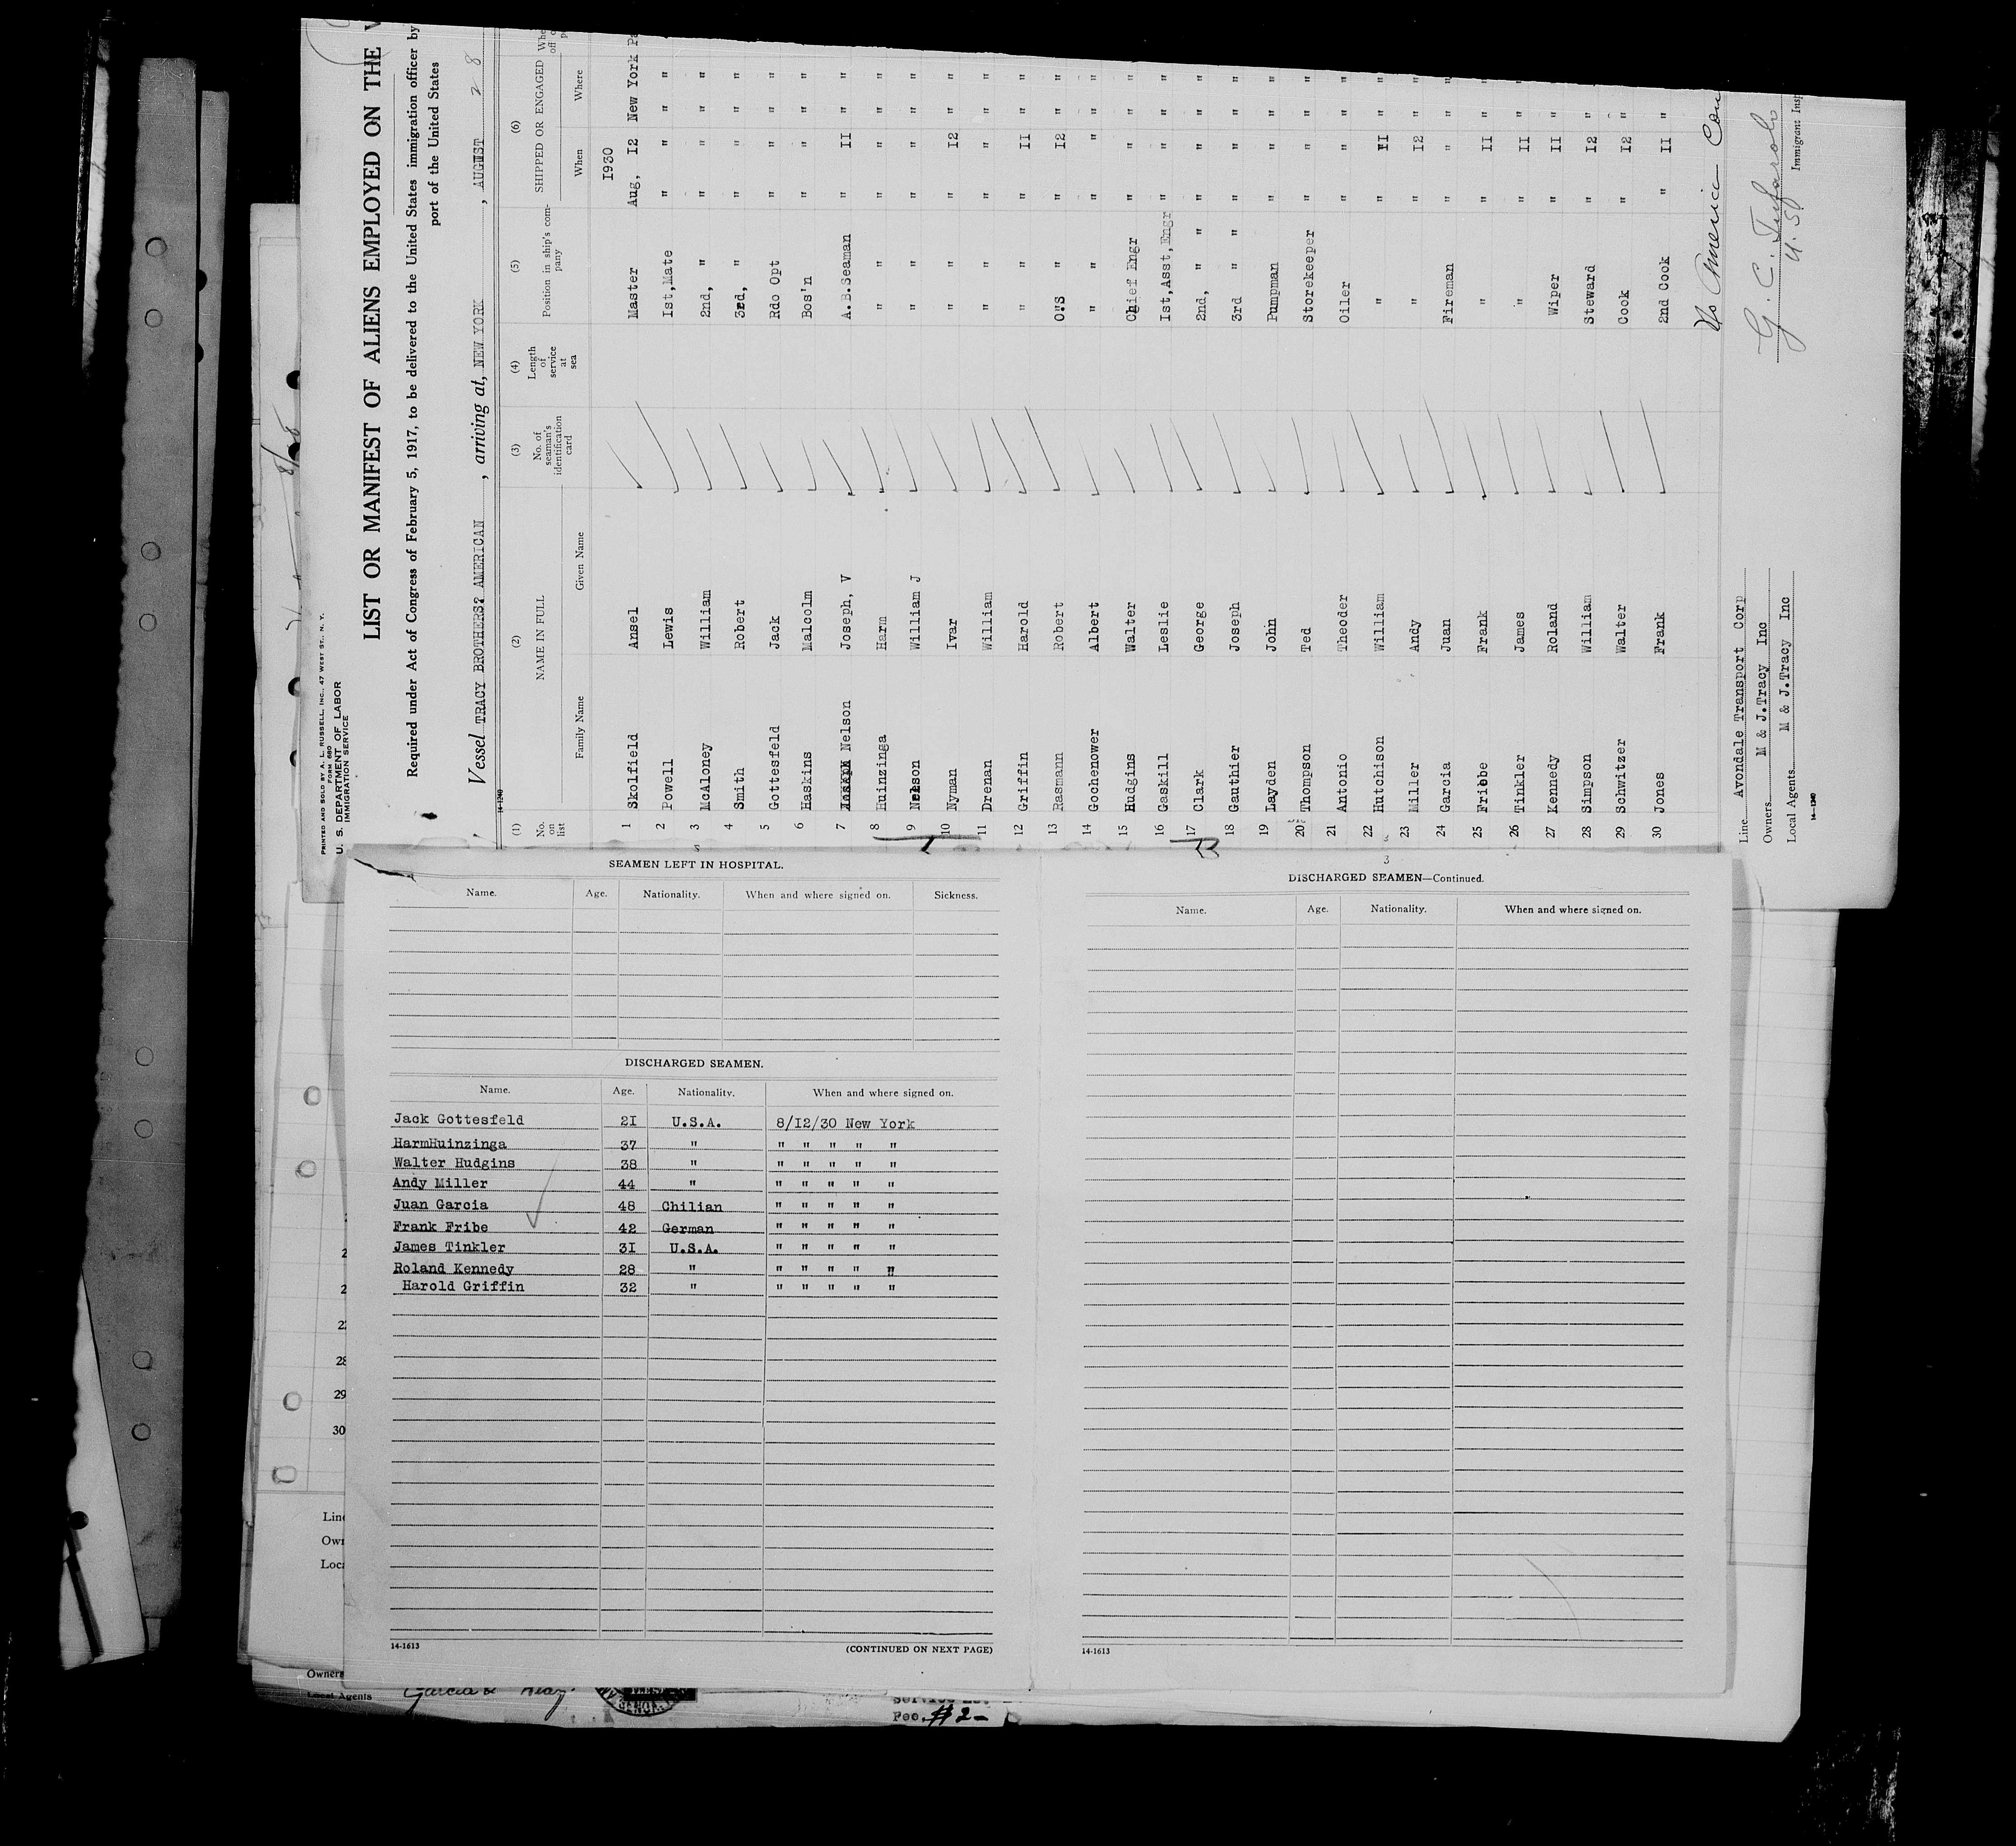 PRINTED AND SOLD BY A. L. RUSSELL, INC., 47 WEST ST., N. Y.
FORM 680
U. S. DEPARTMENT OF LABOR
IMMIGRATION SERVICE
LIST OR MANIFEST OF ALIENS EMPLOYED ON THE
Required under Act of Congress of February 5, 1917, to be delivered to the United States immigration officer by
port of the United States
Vessel TRACY BROTHERS? AMERICAN, arriving at, NEW YORK, AUGUST 28
14-1240
(1) No. on list (2) NAME IN FULL Family Name Given Name (3) No. of seaman's identification card (4) Length of service at sea (5) Position in ship's company (6) SHIPPED OR ENGAGED When Where
1930
1 Skolfield Ansel Master Aug, I2 New York
2 Powell Lewis Ist,Mate " " " "
3 McAloney William 2nd, " " " " "
4 Smith Robert 3rd, " " " " "
5 Gottesfeld Jack Rdo Opt " " " "
6 Haskins Malcolm Bos'n " " " "
7 Nelson Joseph, V A.B.Seaman " II " "
8 Huinzinga Harm " " " " "
9 Nelson William J " " " " "
10 Nyman Ivar " " I2 " "
11 Drenan William " " " " "
12 Griffin Harold " " II " "
13 Rasmann Robert O"S " I2 " "
14 Gochenower Albert " " " " "
15 Hudgins Walter Chief Engr " " " "
16 Gaskill Leslie Ist,Asst,Engr " " " "
17 Clark George 2nd, " " " " " "
18 Gauthier Joseph 3rd " " " " " "
19 Layden John Pumpman " " " "
20 Thompson Ted Storekeeper " " " "
21 Antonio Theoder Oiler " " " "
22 Hutchison William " " II " "
23 Miller Andy " " I2 " "
24 Garcia Juan Fireman " " " "
25 Fribbe Frank " " II " "
26 Tinkler James " " II " "
27 Kennedy Roland Wiper " II " "
28 Simpson William Steward " I2 " "
29 Schwitzer Walter Cook " I2 " "
30 Jones Frank 2nd Cook " II "
Line Avondale Transport Corp
Owners M & J.Tracy Inc
Local Agents M & J.Tracy Inc
14-1240
Immigrant
SEAMEN LEFT IN HOSPITAL.
Name. Age. Nationality. When and where signed on. Sickness.
DISCHARGED SEAMEN.
Name. Age. Nationality. When and where signed on.
Jack Gottesfeld 2I U.S.A. 8/I2/30 New York
HarmHuinzinga 37 " " " " " "
Walter Hudgins 38 " " " " " "
Andy Miller 44 " " " " " "
Juan Garcia 48 Chilian " " " " "
Frank Fribe 42 German " " " " "
James Tinkler 3I U.S.A. " " " " "
Roland Kennedy 28 " " " " " "
Harold Griffin 32 " " " " " "
14-1613 (CONTINUED ON NEXT PAGE)
3
DISCHARGED SEAMEN—Continued.
Name. Age. Nationality. When and where signed on.
14-1613
28
29
30
Owners
Local Agents
Fee. #2-